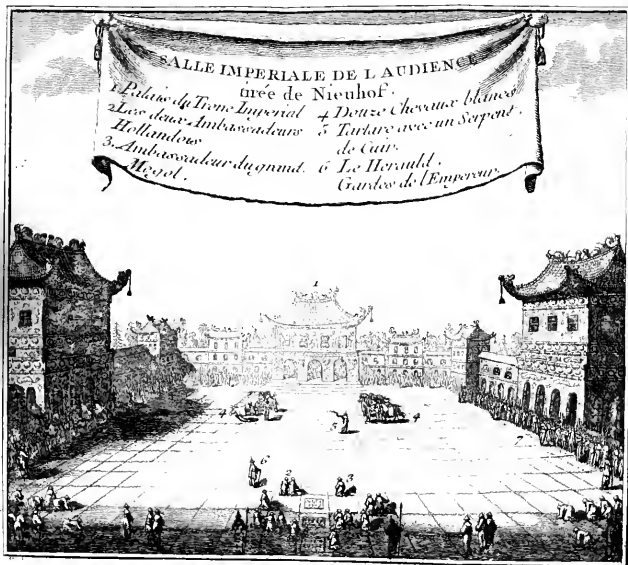 SALLE IMPERIALE DE L AUDIENCE
tirée de Nieuhof.
1 Palais du Trone Imperial
2 Les deux Ambassadeurs
Hollandois
3. Ambassadeur du grand.
Mogol.
4 Douze Chevaux blancs
5 Tartare avec un Serpent.
de Cuir.
6 Le Herauld.
Gardes de l'Empereur.
1
4
4
5
6
2
3
7